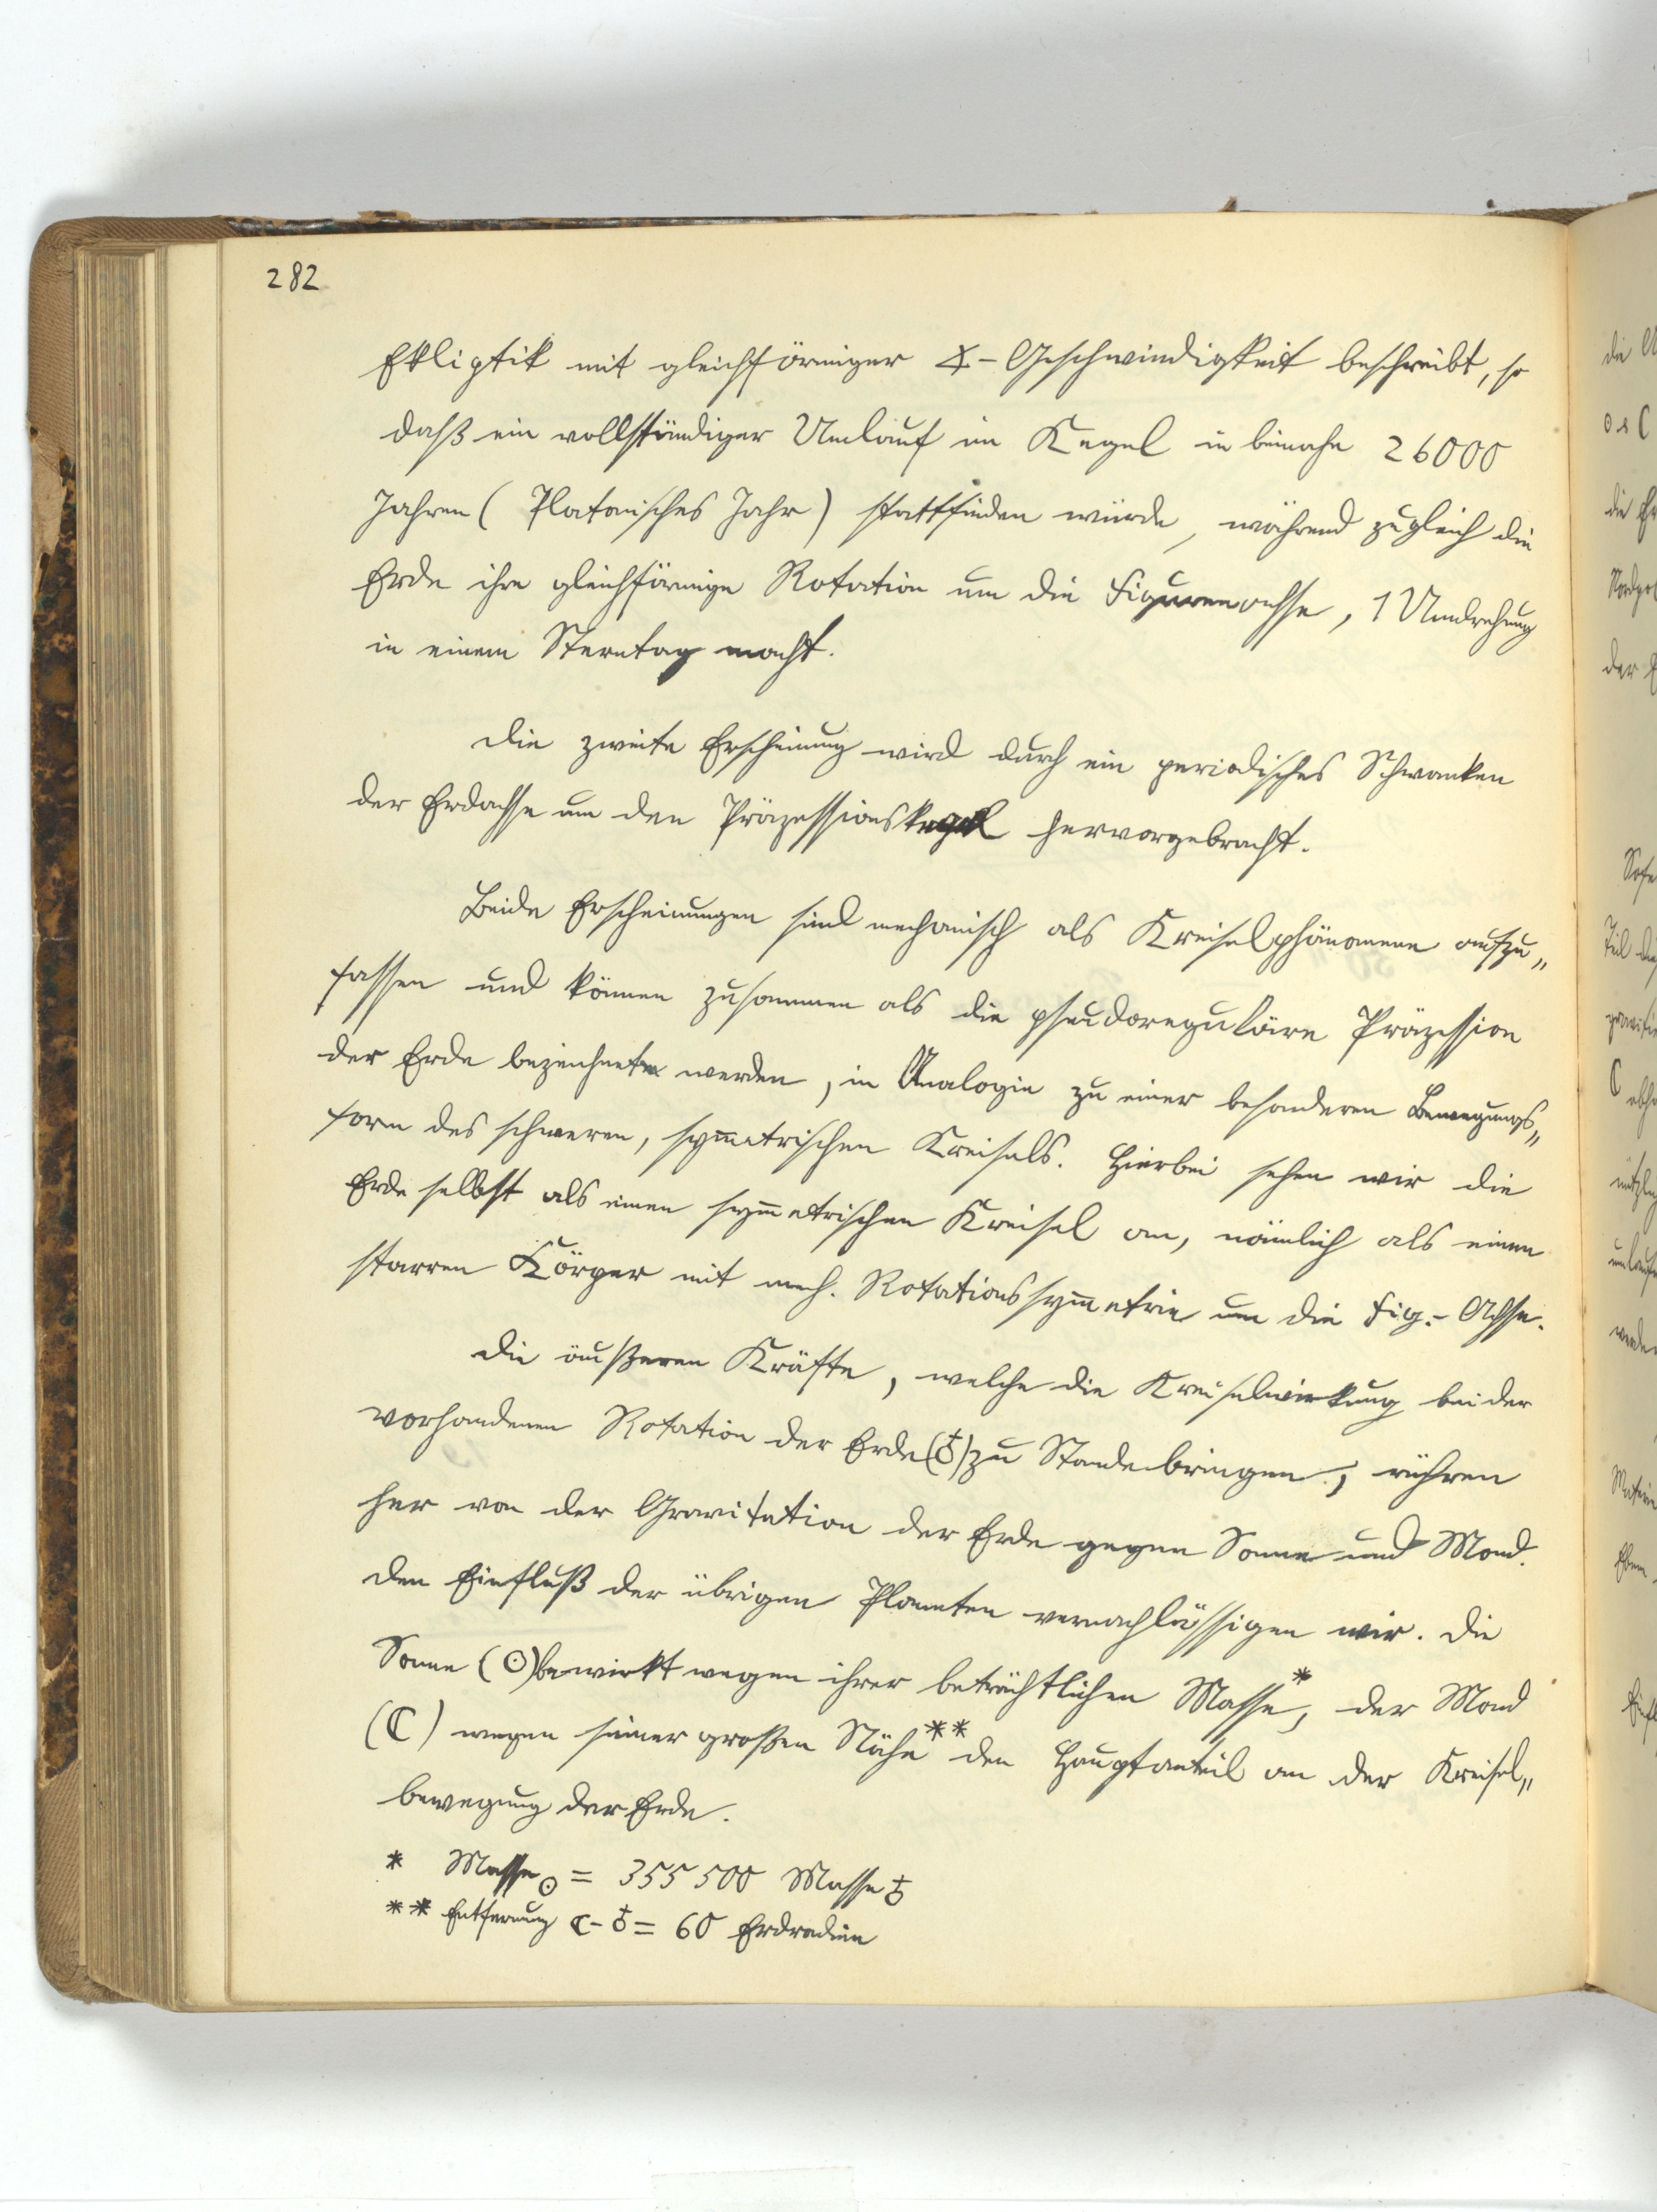 282
Ekliptik mit gleichförmiger ∢-Geschwindigkeit beschreibt, so
daß ein vollständiger Umlauf im Kegel in beinahe 26000
Jahren (Platonisches Jahr) stattfinden würde, während zugleich die
Erde ihre gleichförmige Rotation um die Figurenachse, 1 Umdrehung
in einem Sterntag macht.
Die zweite Erscheinung wird durch ein periodisches Schwanken
der Erdachse um den Präzessionskegel hervorgebracht.
Beide Erscheinungen sind mechanisch als Kreiselphänomene aufzu„
fassen und können zusammen als die pseudoreguläre Präzession
der Erde bezeichnet werden, in Analogie zu einer besonderen Bewegungs„
form des schweren, symmetrischen Kreisels. Hierbei sehen wir die
Erde selbst als einen symmetrischen Kreisel an, nämlich als einen
starren Körper mit mech. Rotationssymmetrie um die Fig.-Achse.
Die äußeren Kräfte, welche die Kreiselwirkung bei der
vorhandenen Rotation der Erde (♁) zu Stande bringen, rühren
her von der Gravitation der Erde gegen Sonne und Mond.
Den Einfluß der übrigen Planeten vernachlässigen wir. Die
Sonne (☉) bewirkt wegen ihrer beträchtlichen Masse*, der Mond
(☾) wegen seiner großen Nähe** den Hauptanteil an der Kreisel„
bewegung der Erde.
* Masse ☉ = 355 500 Masse ♁
** Entfernung ☾-♁ = 60 Erdradien